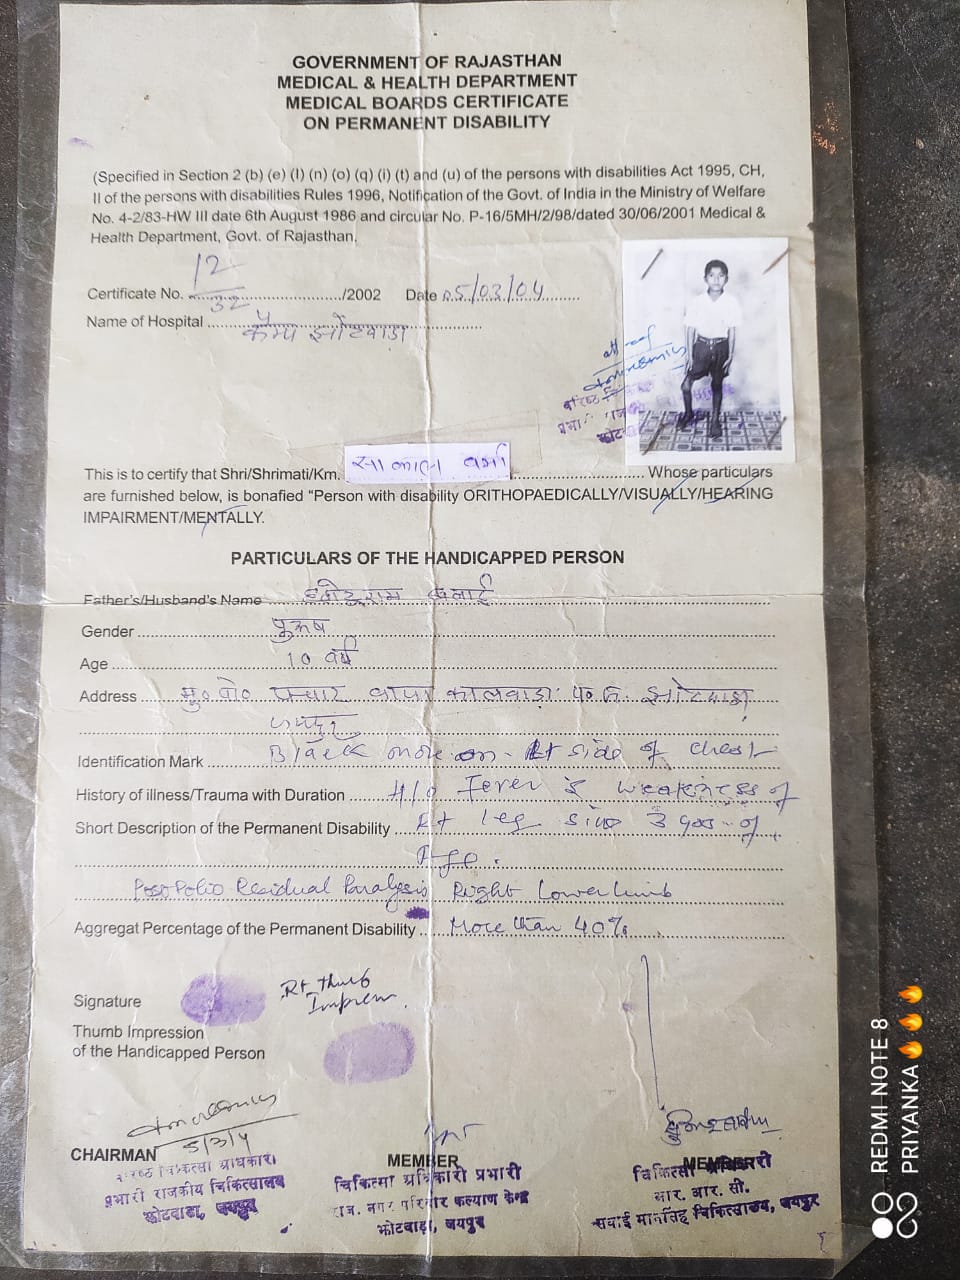 GOVERNMENT OF RAJASTHAN
MEDICAL & HEALTH DEPARTMENT
MEDICAL BOARDS CERTIFICATE
ON PERMANENT DISABILITY
(Specified in Section 2 (b) (e) (l) (n) (o) (q) (i) (t) and (u) of the persons with disabilities Act 1995, CH,
II of the persons with disabilities Rules 1996, Notification of the Govt. of India in the Ministry of Welfare
No. 4-2/83-HW III date 6th August 1986 and circular No. P-16/5MH/2/98/dated 30/06/2001 Medical &
Health Department, Govt. of Rajasthan.
12
Certificate No. 32 /2002 Date 05/03/04
Name of Hospital कैम्प झोटवाड़ा
वरिष्ठ
प्रभारी
This is to certify that Shri/Shrimati/Km. वर्मा Whose particulars
are furnished below, is bonafied "Person with disability ORITHOPAEDICALLY/VISUALLY/HEARING
IMPAIRMENT/MENTALLY.
PARTICULARS OF THE HANDICAPPED PERSON
Father's/Husband's Name बलाई
Gender पुरूष
Age 10 वर्ष
Address मु० पो० वाया कालवाड़ झोटवाड़ा
जयपुर
Identification Mark Black mole on Rt side of chest
History of illness/Trauma with Duration H/o Fever weakness of
Short Description of the Permanent Disability Rt leg since 3 yrs of
Age.
Post Polio Residual Paralysis Right Lower limb
Aggregat Percentage of the Permanent Disability More than 40%
Signature Rt thumb
Impression
Thumb Impression
of the Handicapped Person
5/3/4
CHAIRMAN MEMBER MEMBER
वरिष्ठ चिकित्सा अधिकारी
प्रभारी राजकीय चिकित्सालय
झोटवाड़ा, जयपुर
चिकित्सा अधिकारी प्रभारी
राज. नगर परिवार कल्याण केन्द्र
झोटवाड़ा, जयपुर
चिकित्सा अधिकारी
आर. आर. सी.
सवाई मानसिंह चिकित्सालय, जयपुर
REDMI NOTE 8
PRIYANKA🔥🔥🔥